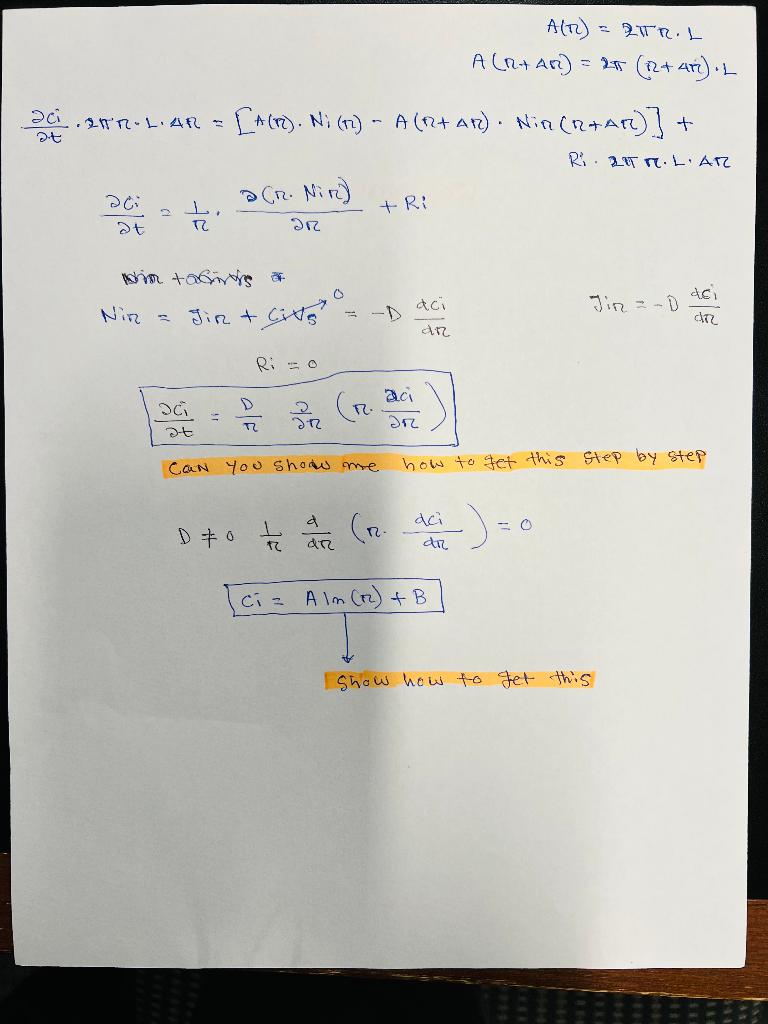 A(r) = 2πr.L
A(r+Δr) = 2π (r+Δr).L
∂Ci/∂t . 2πr.L.Δr = [A(r). Ni(r) - A(r+Δr). Nir(r+Δr)] +
Ri . 2πr.L.Δr
∂Ci/∂t = 1/r . ∂(r. Nir)/∂r + Ri
Nir = Jir + CiVs → 0 = -D dCi/dr
Jir = -D dCi/dr
Ri = 0
∂Ci/∂t = D/r ∂/∂r (r. ∂Ci/∂r)
Can you show me how to get this step by step
D ≠ 0 1/r d/dr (r. dCi/dr) = 0
Ci = A ln(r) + B
Show how to get this